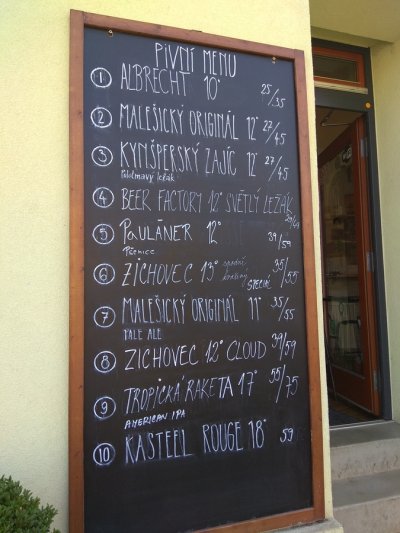 PIVNÍ MENU
1 ALBRECHT 10° 25/35
2 MALEŠICKÝ ORIGINÁL 12° 27/45
3 KYNŠPERSKÝ ZAJÍC 12° 27/45
Polotmavý ležák
4 BEER FACTORY 12° SVĚTLÝ LEŽÁK
5 PAULÁNER 12° 39/59
Pšenice
6 ZICHOVEC 13° SPECIÁL 35/55
7 MALEŠICKÝ ORIGINÁL 11° 35/55
PALE ALE
8 ZICHOVEC 12° CLOUD 39/59
9 TROPICKÁ RAKETA 17° 55/75
AMERICAN IPA
10 KASTEEL ROUGE 18° 59